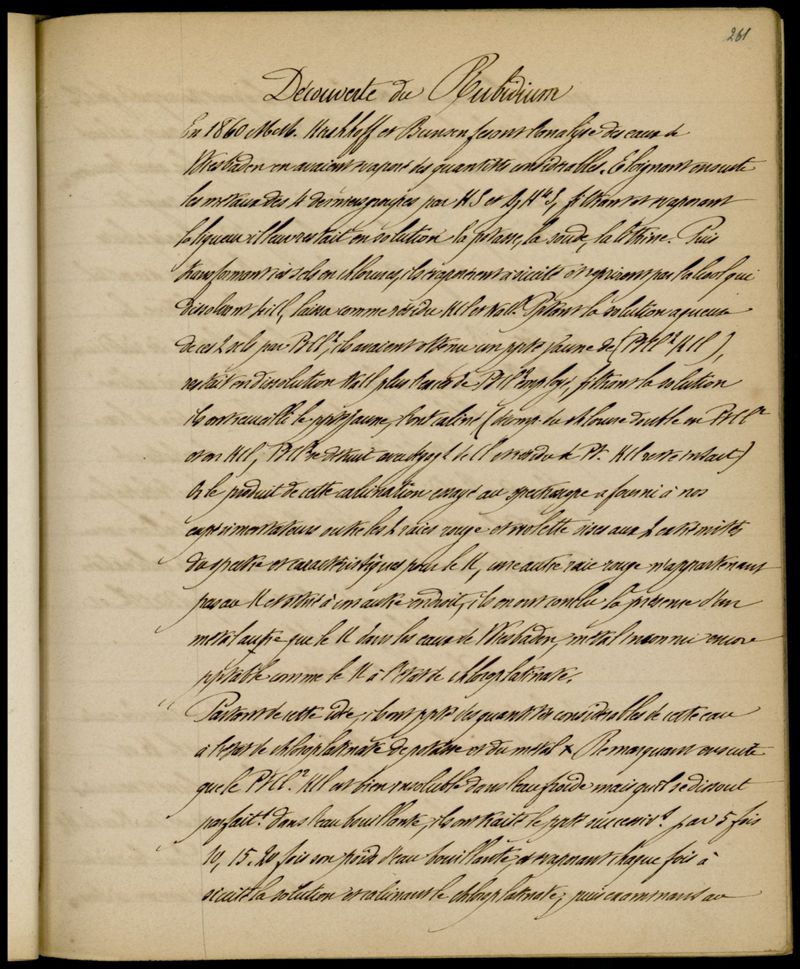 261
Découverte du Rubidium
En 1860 MM. Kirchhoff et Bunsen ferons l'analyse des eaux de
Wiesbaden en avaient évaporé des quantités considérables. Eloignant ensuite
les métaux des 4 derniers groupes par HS et filtrant et évaporant
la liqueur il leur restait en solution la potasse, la soude, la lithine. Puis
transformant ces sels en chlorures, ils évaporèrent à siccité et reprirent par l'alcool qui
dissolvant LiCl, laissa comme résidu KCl et NaCl. Pptant la solution aqueuse
de ces 2 sels par PtCl², ils avaient obtenu un ppté jaune de (PtCl², KCl),
restait en dissolution NaCl plus l'excès de PtCl² employé, filtrant la solution
ils ont recueilli le ppté jaune, l'ont calciné (décomp. du chlorure double en PtCl²
et en KCl, PtCl² se détruit avec dégagt de Cl et résidu de Pt. KCl reste intact)
Or le produit de cette calcination essayé au spectroscope a fourni à nos
expérimentateurs outre les 2 raies rouge et violette sises aux 2 extrémités
du spectre et caractéristiques pour le K, une autre raie rouge n'appartenant
pas au K et située à un autre endroit, ils en ont conclu la présence d'un
métal autre que le K dans les eaux de Wiesbaden, métal inconnu encore
pptable comme le K à l'état de chloroplatinate.
Partant de cette idée, ils ont ppté des quantités considérables de cette eau
à l'état de chloroplatinate de potasse et du métal x. Remarquant ensuite
que le PtCl², KCl est bien insoluble dans l'eau froide mais qu'il se dissout
parfait.t dans l'eau bouillante, ils ont traité le ppté successiv.t par 5 fois
10, 15, 20 fois son poids d'eau bouillante, et évaporant chaque fois à
siccité la solution et calcinant le chloroplatinate; puis examinant au